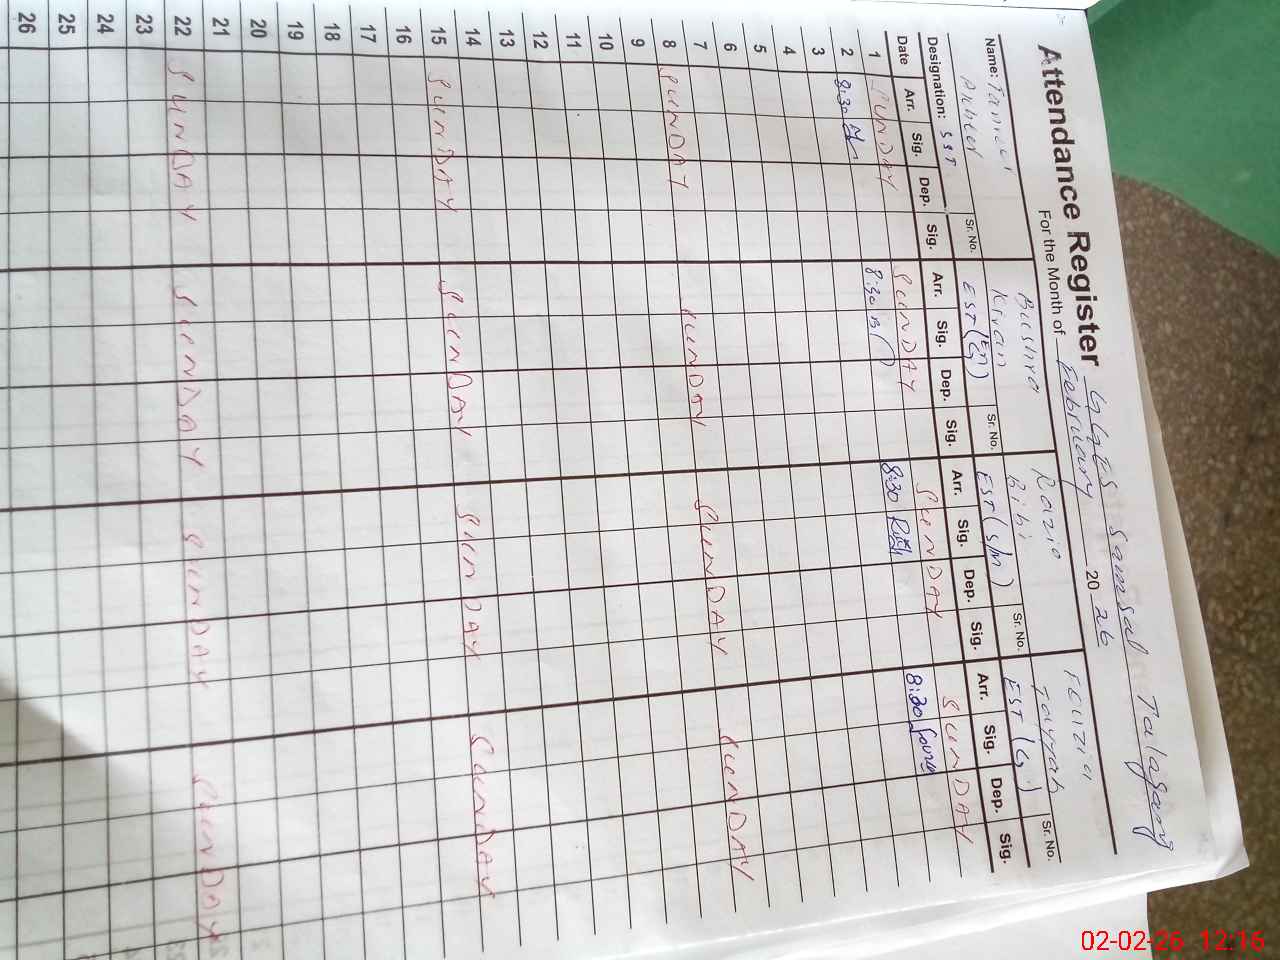 Attendance Register GGES Samsal Talagang
For the Month of February 20 26
Name: Tanveer Akhter Sr. No.
Bushra Kiran Sr. No.
Razia Bibi Sr. No.
Fouzia Tayyab Sr. No.
Designation: SST EST (En) EST (S/M) EST (G)
Date Arr. Sig. Dep. Sig. Arr. Sig. Dep. Sig. Arr. Sig. Dep. Sig. Arr. Sig. Dep. Sig.
1 SUNDAY SUNDAY SUNDAY SUNDAY
2 8:30 8:30 8:30 8:30
3
4
5
6
7
8 SUNDAY SUNDAY SUNDAY SUNDAY
9
10
11
12
13
14
15 SUNDAY SUNDAY SUNDAY SUNDAY
16
17
18
19
20
21
22 SUNDAY SUNDAY SUNDAY SUNDAY
23
24
25
26
02-02-26 12:16